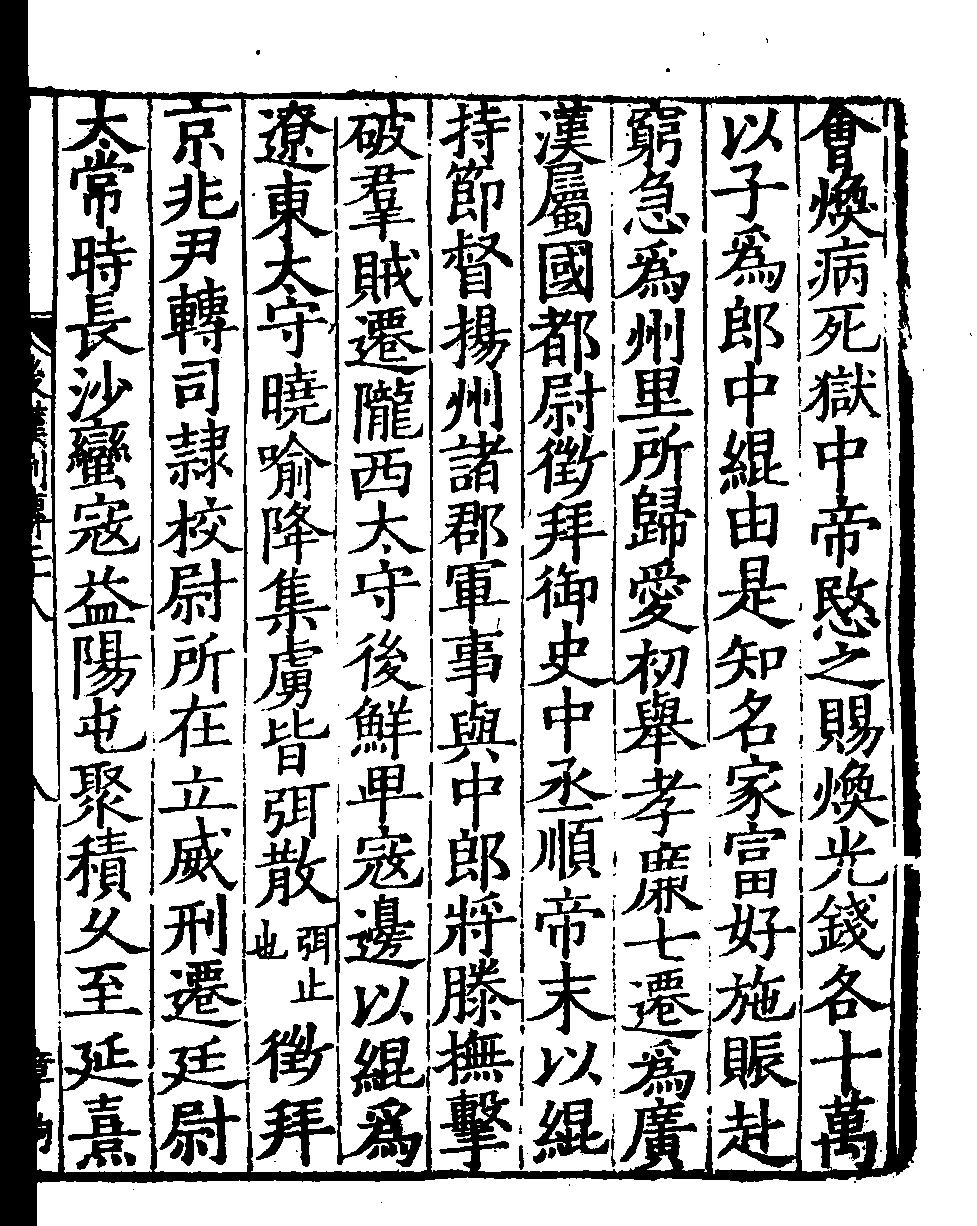 會煥病死獄中帝愍之賜煥光錢各十萬
以子爲郎中緄由是知名家富好施賑赴
窮急爲州里所歸愛初舉孝廉七遷爲廣
漢屬國都尉徵拜御史中丞順帝末以緄
持節督揚州諸郡軍事與中郎將滕撫擊
破羣賊遷隴西太守後鮮卑寇邊以緄爲
遼東太守曉喻降集虜皆弭散弭止也徵拜
京兆尹轉司隷校尉所在立威刑遷廷尉
太常時長沙蠻寇益陽屯聚積久至延熹
後漢列傳二十八
八